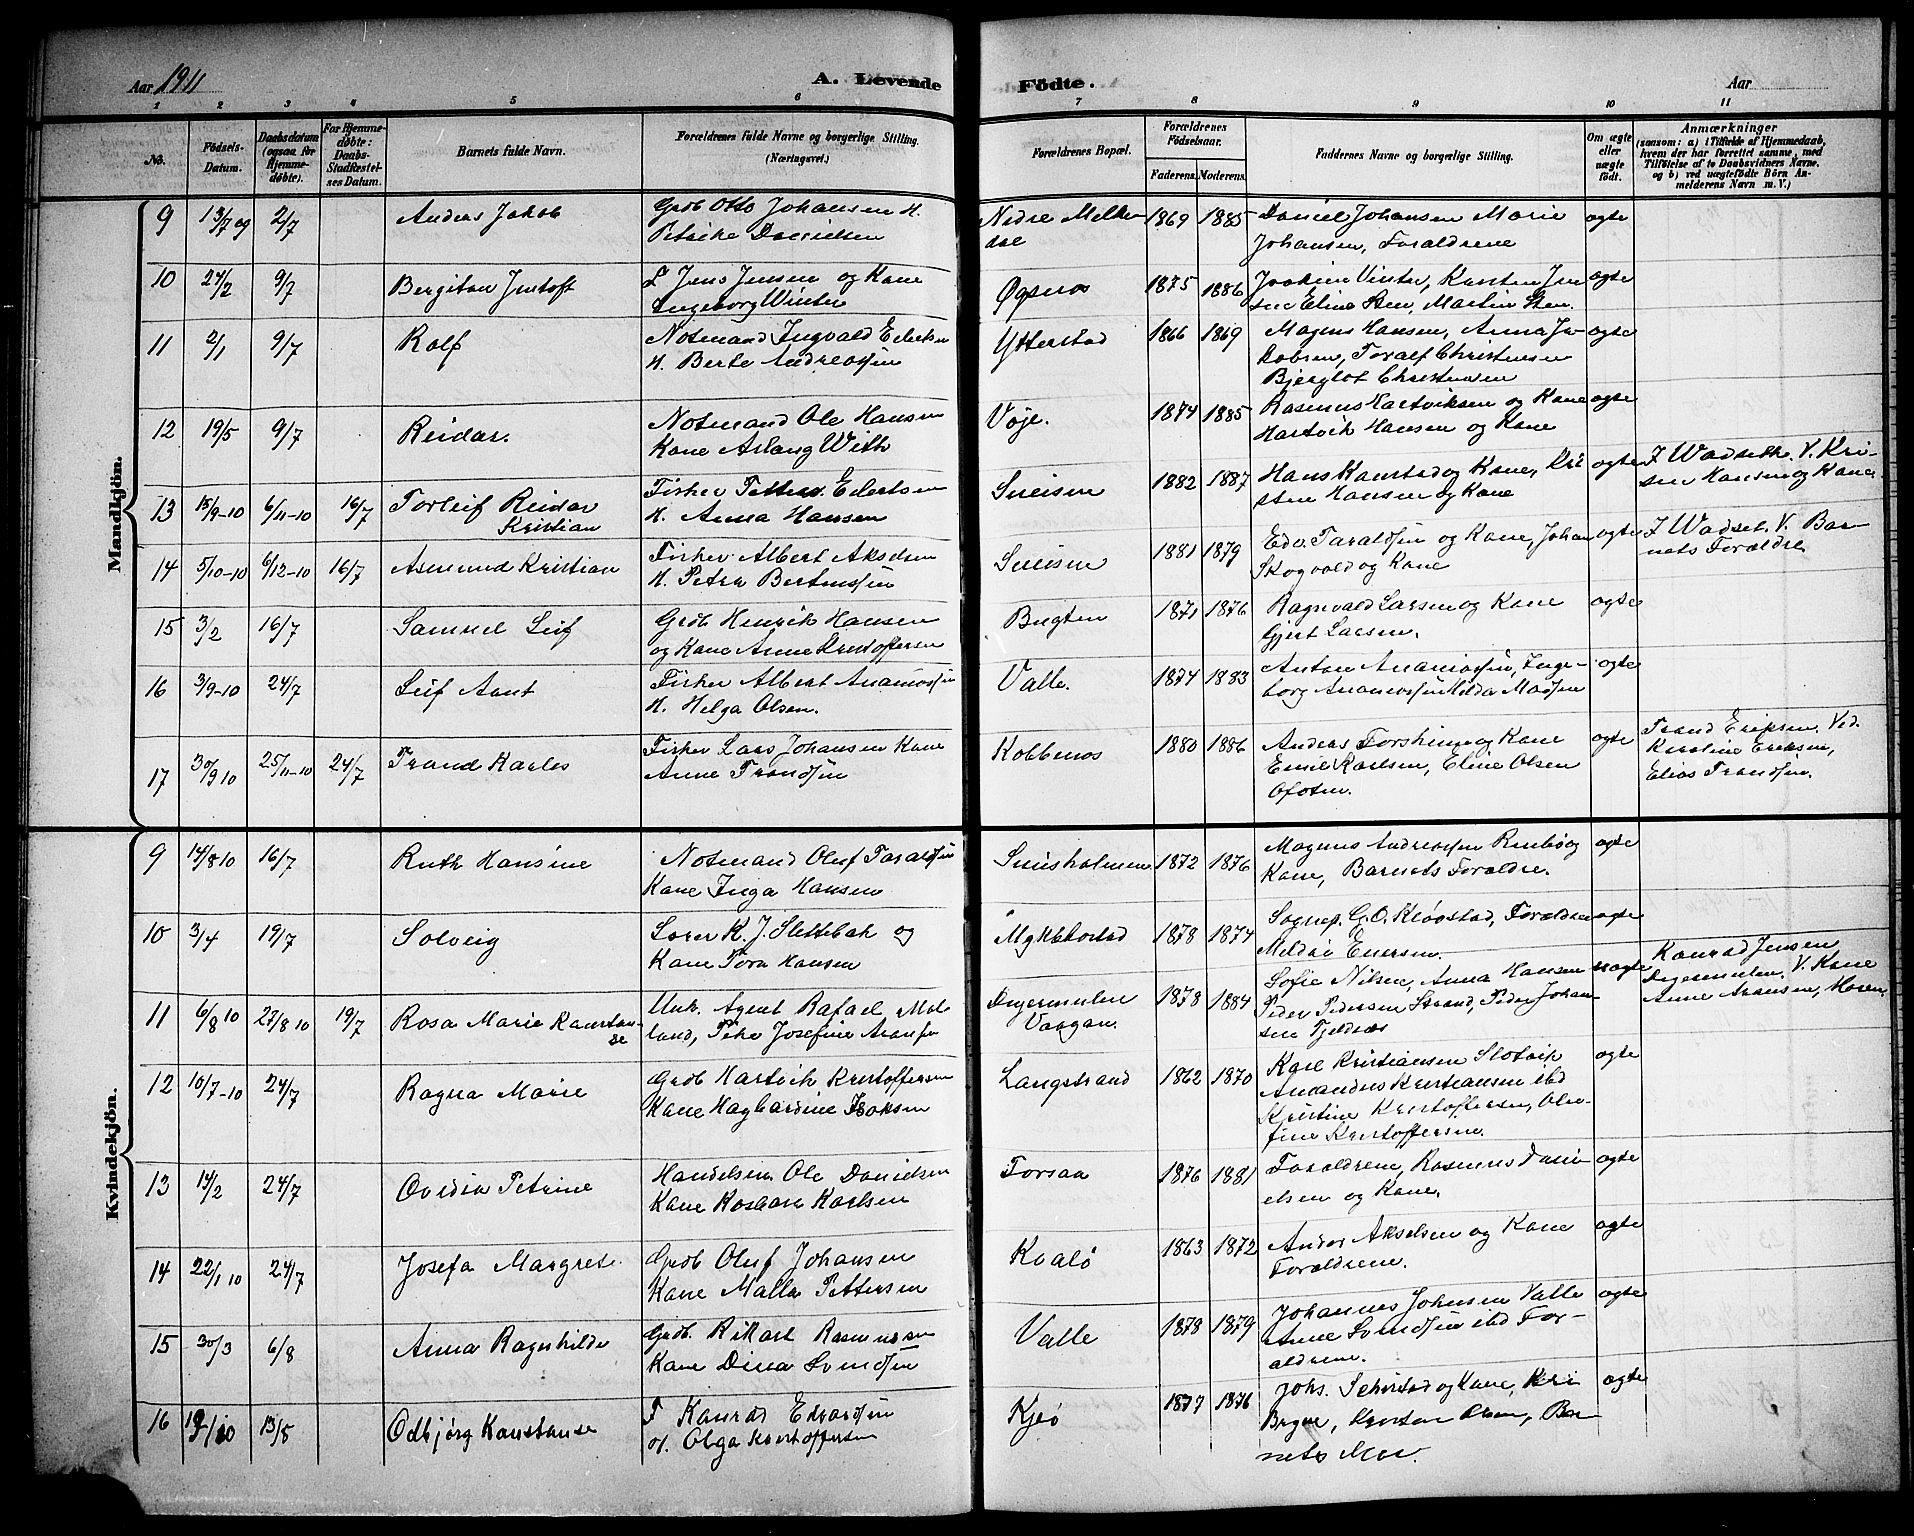 Aar 1911
A. Levende
Fødte.
Aar
1 2 3 4 5 6 7 8 9 10 11
No.
Fødsels-Datum.
Daabsdatum (ogsaa for Hjemme-døbte).
For Hjemme-døbte: Daabs-Stadfæstel-ses Datum.
Barnets fulde Navn.
Forældrenes fulde Navne og borgerlige Stilling.
(Næringsvei.)
Forældrenes Bopæl.
Forældrenes Fødselsaar.
Faderens. Moderens.
Faddernes Navne og borgerlige Stilling.
Om ægte eller uægte født.
Anmærkninger
(saasom: a) i Tilfælde af Hjemmedaab,
hvem der har forrettet samme, med
Tilføielse af to Daabsvidners Navne,
og b) ved uægtefødte Børn An-
melderens Navn m. V.)
Mandkjön.
9 13/7 09 2/7 Anders Jakob Grdb Otto Johansen H. Petrike Danielsen Nedre Melke dal 1869 1885 Daniel Johansen Marie Johansen, Forældrene ægte
10 24/2 9/7 Bergiton Jentoft L Jens Jensen og Kone Ingeborg Winter Øgsnes 1875 1886 Joakine Vinter, Karsten Jen sen Eline Sten, Martin Sten. ægte
11 2/1 9/7 Rolf Notmand Ingvald Edvertsen H. Berte Andreassen Ytterstad 1866 1869 Magnus Hansen, Anna Ja- kobsen, Toralf Christensen Bjerglot Christensen ægte
12 19/5 9/7 Reidar. Notmand Ole Hansen Kone Aslaug With Vøje. 1874 1885 Rasmus Hartviksen og Kone Hartvik Hansen og Kone ægte
13 15/9-10 6/11-10 16/7 Torleif Reidar Kristian Fisker Petter Edertsen H. Anna Hansen Sneisen 1882 1887 Hans Kanstad og Kone, Kri sten Hansen og Kone ægte F Wadseth. V. Kri- sten Hansen og Kone
14 5/10-10 6/12-10 16/7 Asmund Kristian Fisker Albert Akselsen H. Petra Berteussen Sneisen 1881 1879 Edv. Taraldsen og Kone, Johan Skogvold og Kone ægte F Wadset. V. Bar- nets Forældre
15 3/2 16/7 Samuel Leif Grdb Henrik Hansen og Kone Anne Kristoffersen Bugten 1871 1876 Ragnvald Larsen og Kone Gjert Larsen. ægte
16 3/9-10 24/7 Leif Arnt Fisker Albert Ananiassen H. Helga Olsen. Valle. 1874 1883 Anton Ananiassen, Inge- borg Ananiassen Milda Madsen ægte
17 30/9 10 25/11-10 24/7 Trand Karles Fisker Lars Johansen Kone Anne Trandsen Kobbenes 1880 1886 Anders Forshine og Kone Emil Karlsen, Eline Olsen Ofoten. ægte Trand Eriksen. Vid. Karoline Eriksen, Elias Trandsen.
Kvindekjön.
9 14/8 10 16/7 Ruth Hansine Notmand Oluf Taraldsen Kone Inga Hansen Sneisholmen 1872 1876 Magnus Andreassen Renbø og Kone, Barnets Forældre. ægte
10 3/4 19/7 Solveig Lærer K. J. Slettebak og Kone Tora Hansen Myklebostad 1878 1874 Sognep. G. O. Kløgstad, Forældrene Meldor Einersen. ægte
11 6/8 10 27/8 10 19/7 Rosa Marie Konstan- se Unk. Agent Rafael Mol land, Pike Josefine Aronsen Digermulen Vaagan. 1878 1884 Sofie Nilsen, Anna Hansen Peder Pedersen Strand, Peder Johan- sen Tjeldnes uægte Konrad Jensen Digermulen. V. Kone Anne Aronsen, Moren
12 10/7-10 24/7 Ragna Marie Grdb Hartvik Kristoffersen Kone Hagbardine Isaksen Langstrand 1862 1870 Kaal Kristiansen Slotvik Amandus Kristiansen ibd Kristine Kristoffersen, Ole- fine Kristoffersen. ægte
13 14/2 24/7 Ovidia Petrine Handelsm Ole Danielsen Kone Rosbara Karlsen Forsaa 1876 1881 Forældrene, Rasmus Dani elsen og Kone. ægte
14 22/1 10 24/7 Josefa Margrete. Grdb Oluf Johansen Kone Malla Pettersen Kvalø 1863 1872 Anders Akselsen og Kone Forældrene. ægte
15 30/3 6/8 Anna Ragnhilda Grdb. Rikart Rasmussen Kone Dina Svendsen Valle 1878 1879 Johannes Johnsen Valle Anne Svendsen ibd For- ældrene. ægte
16 13/8 Odbjørg Konstanse F Konrad Edvardsen H. Olga Kristoffersen Kjeø 1877 1876 Johs. Setertad og Kone, Kri Bryne, Kristen Olsen, Bar- nets Mor. ægte